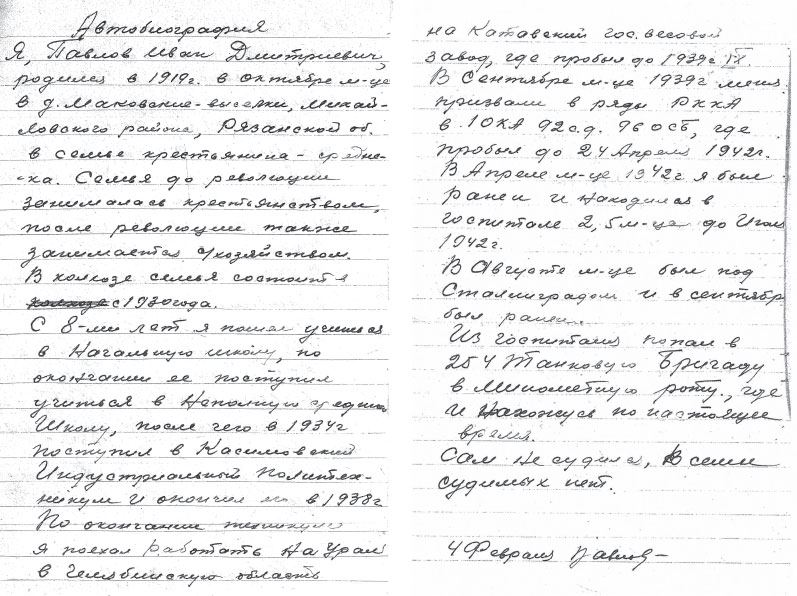 Автобиография
Я, Павлов Иван Дмитриевич,
родился в 1919г. в октябре м-це
в д. Маковские-выселки, Михай-
ловского района, Рязанской об.
в семье крестьянина - средня-
-ка. Семья до революции
занималась крестьянством,
после революции также
занимается с/хозяйством.
В колхозе семья состоит
с 1930 года.
С 8-ми лет я пошел учиться
в Начальную школу, по
окончании ее поступил
учиться в Неполную среднюю
Школу, после чего в 1934г
поступил в Касимовский
Индустриальный Политех-
никум и окончил его в 1938г
По окончании техникума
я поехал работать на Урал
в Челябинскую область
на Катавский гос. весовой
завод, где пробыл до 1939г IX.
В Сентябре м-це 1939г меня
призвали в ряды РККА
в 1 ОКА 92 с.д. 96 ОСБ, где
пробыл до 24 Апреля 1942г.
В Апреле м-це 1942г я был
ранен и находился в
госпитале 2,5 м-ца до Июля
1942г.
В Августе м-це был под
Сталинградом и в сентябр
был ранен.
Из госпиталя попал в
254 Танковую Бригаду
в Минометную роту, где
и нахожусь по настоящее
время.
Сам не судился, В семье
судимых нет.
4 Февраля Павлов